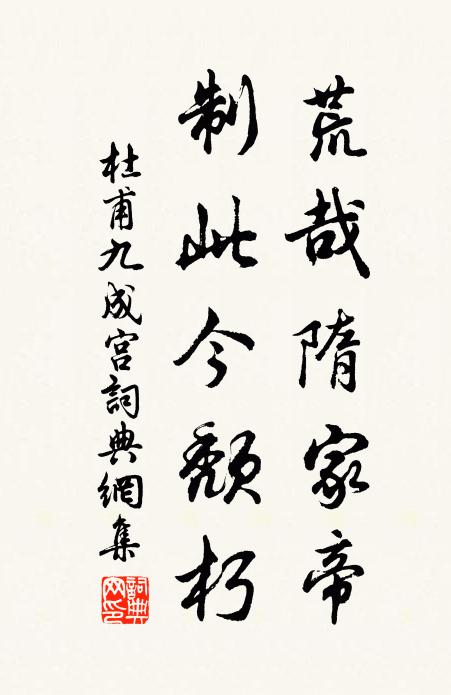 荒哉隋家帝
制此今頹朽
杜甫九成宫詞典網集
詞典网印